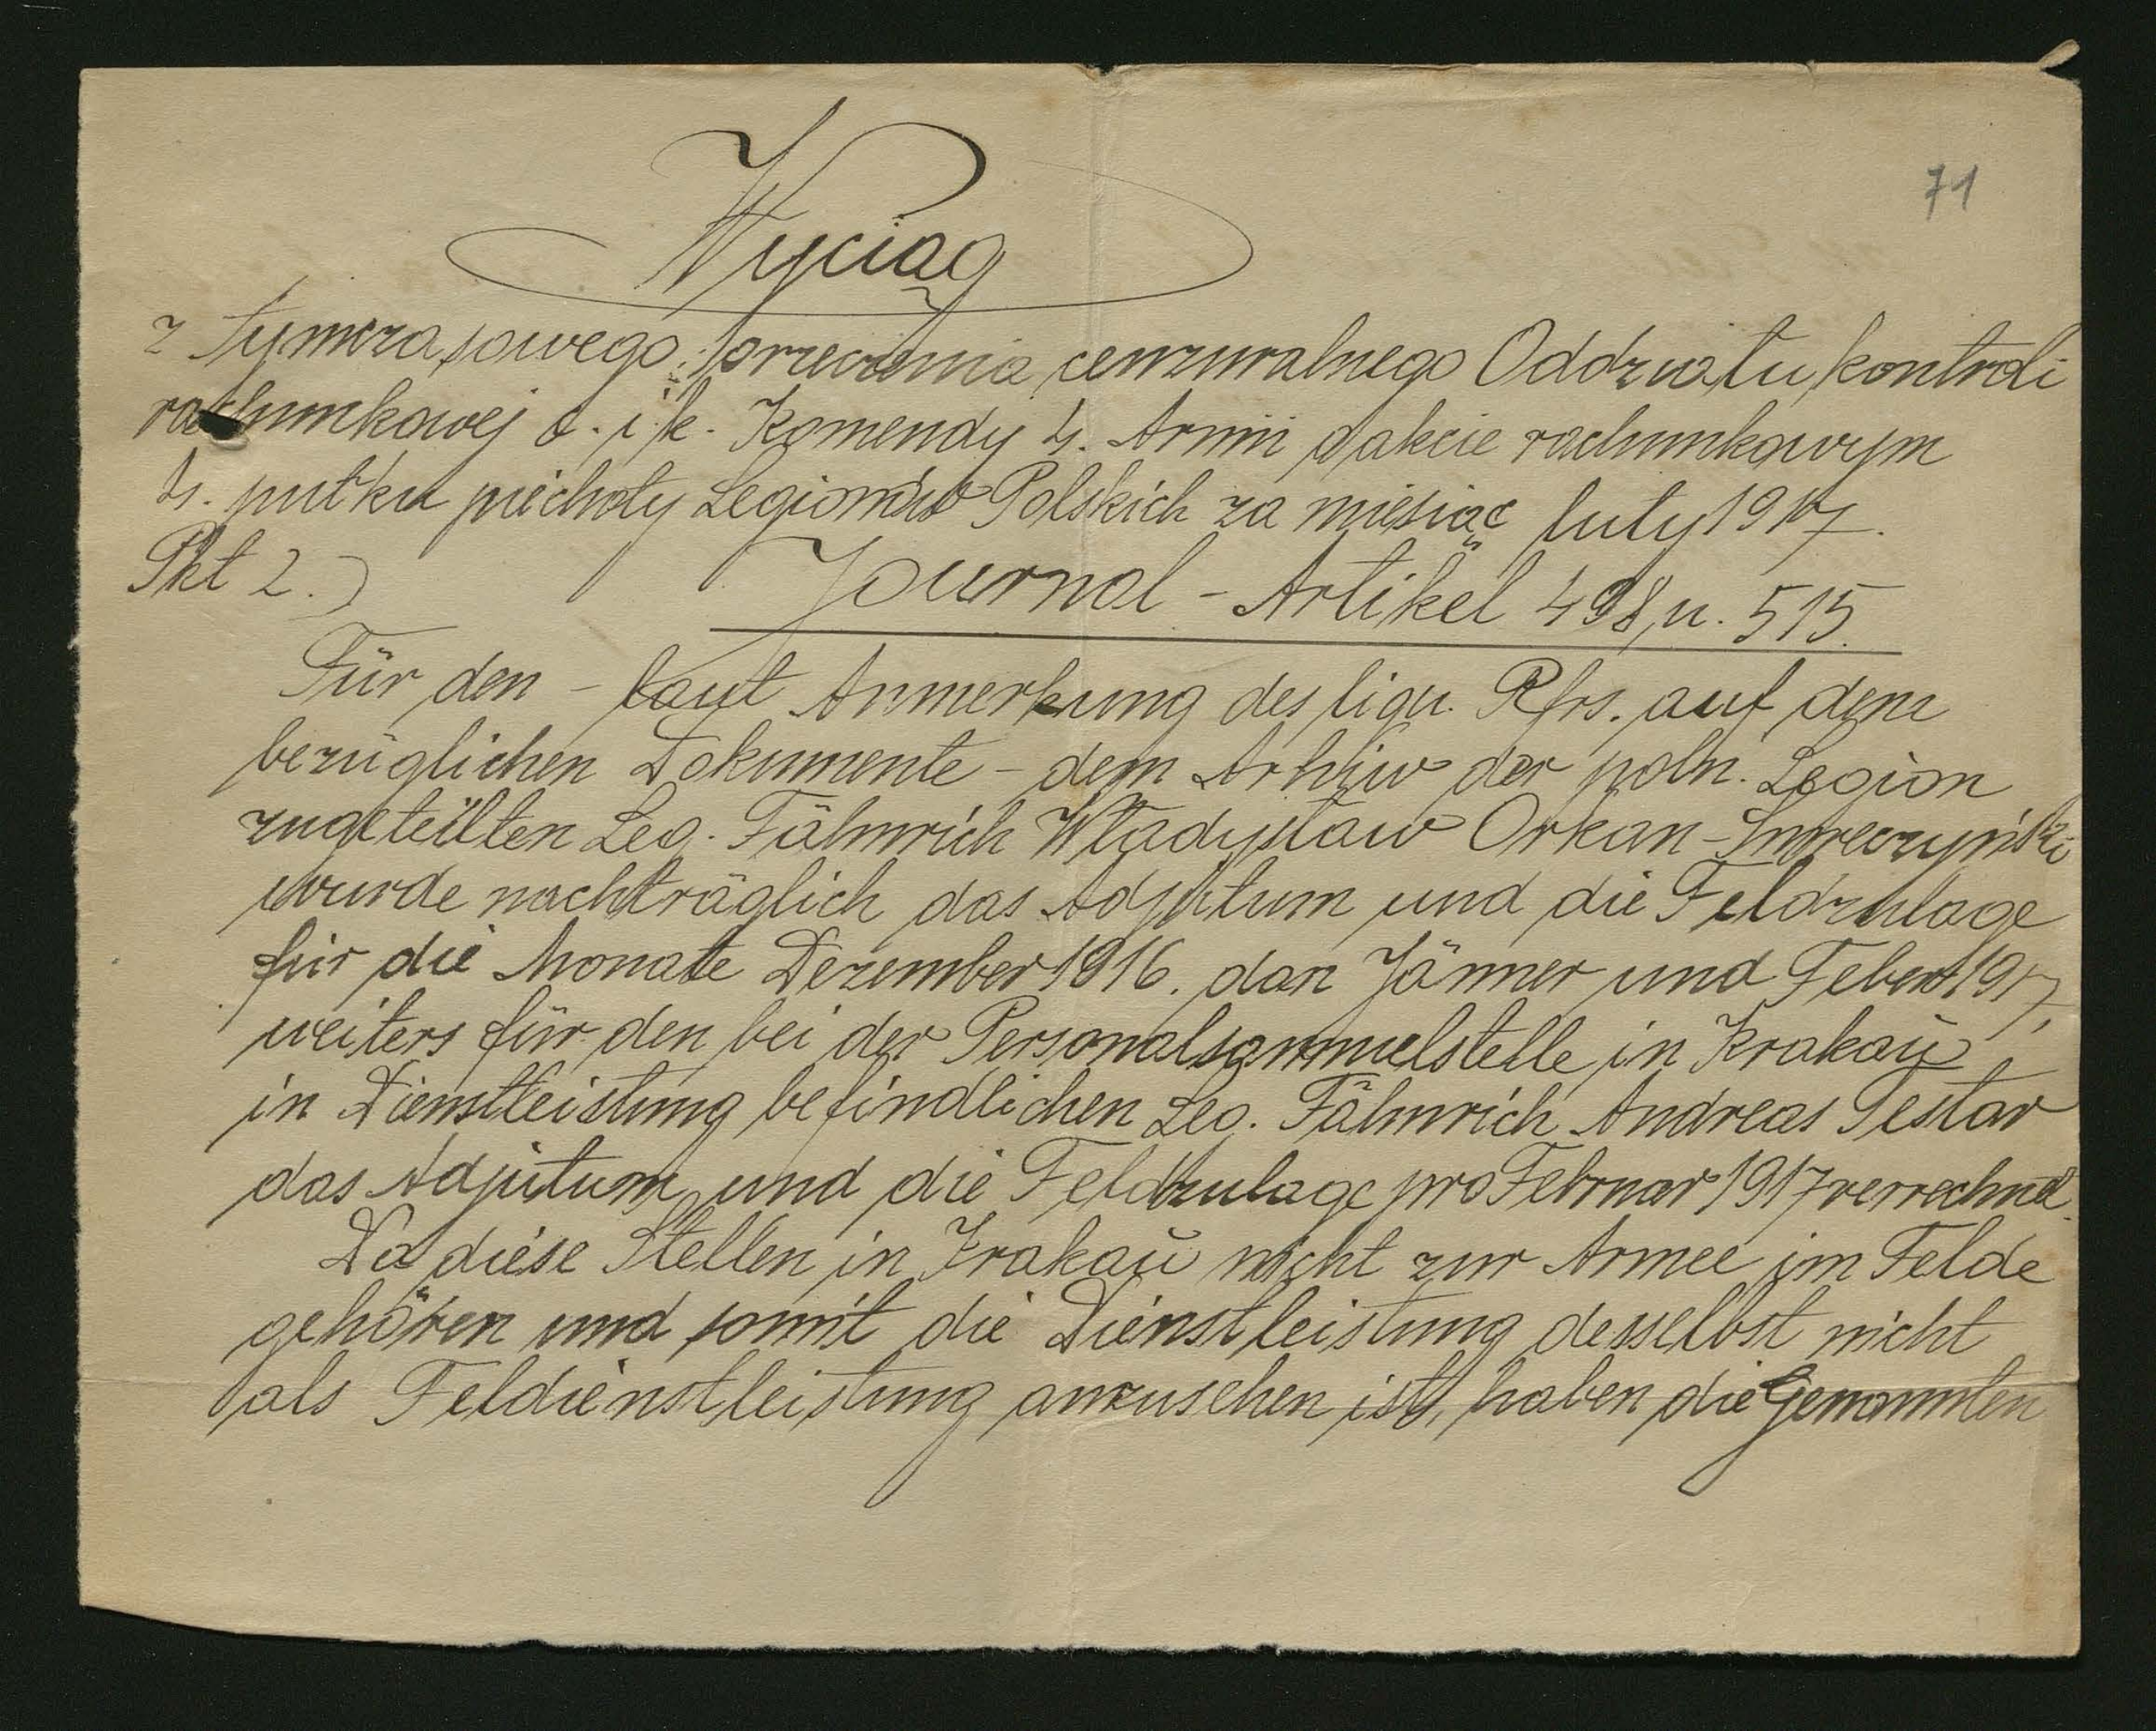 71
Wyciąg
z Tymczasowego orzeczenia cenzuralnego Oddziału kontroli
rachunkowej c. i k. Komendy 4. Armii o akcie rachunkowym
4. pułku piechoty Legionów Polskich za miesiąc luty 1917.
Pkt 2.) Journal - Artikel 498, u. 515.
Für den - laut Anmerkung des liqu. Rfrs. auf dem
bezüglichen Dokumente - dem Arhiw der poln. Legion
zugeteilten Leg. Fähnrich Władysław Orkan-Smreczyński
wurde nachträglich das Adjutum und die Feldzulage
für die Monate Dezember 1916. dan Jänner und Feber 1917,
weiters für den bei der Personalsammelstelle in Krakau
in Dienstleistung befindlichen Leg. Fähnrich Andreas
das Adjutum und die Feldzulage pro Februar 1917 verrechnet.
Da diese Stellen in Krakau nicht zur Armee im Felde
gehören und somit die Dienstleistung desselbst nicht
als Feldienstleistung anzusehen ist, haben die Genannten